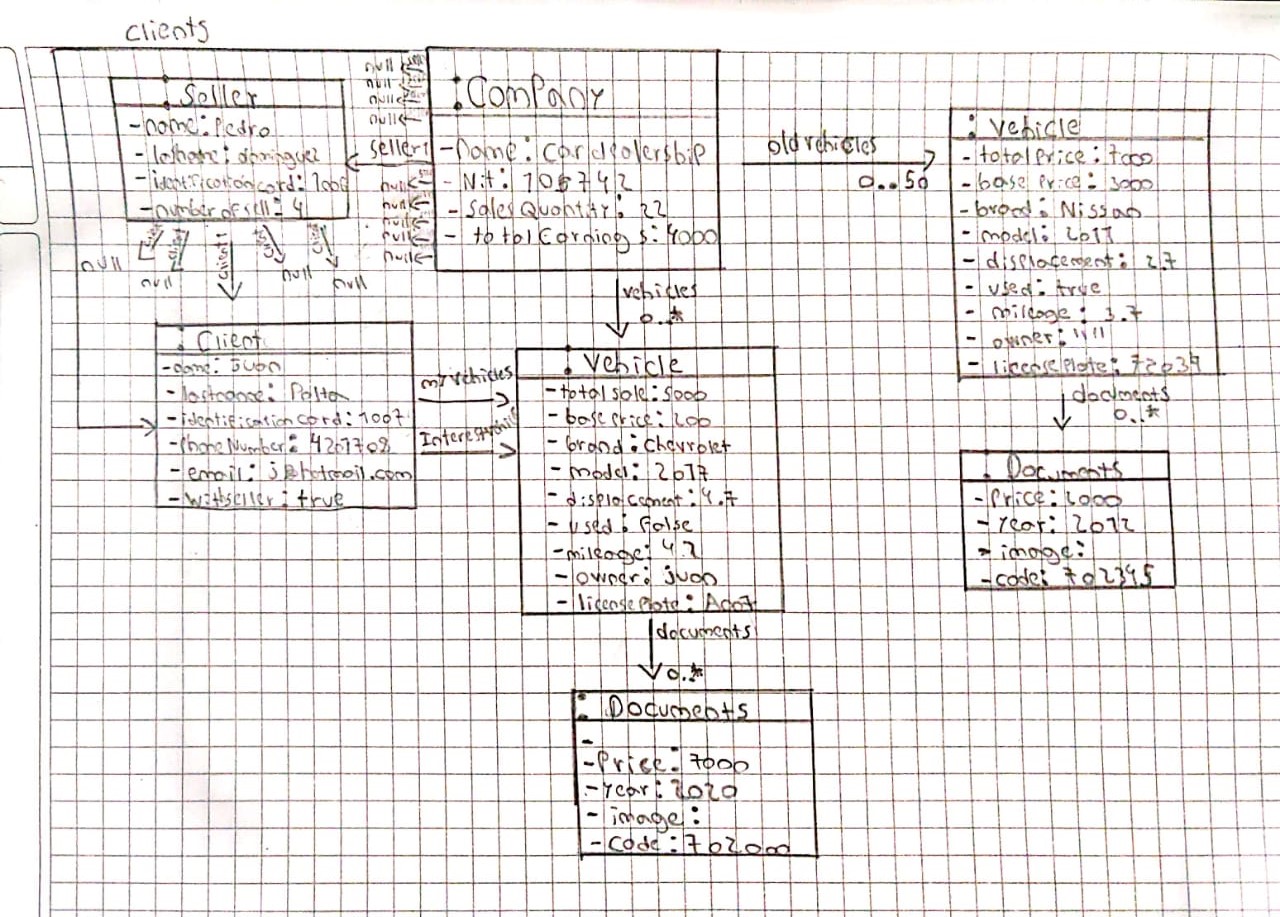 clients
: Seller
-name: Pedro
-identification card: 1006
-number of sell: 4
null
null
null
null
seller1
null
null
null
null
null
client1
null
null
null
null
: Company
-Name: cardealership
- Nit: 106742
- Sales Quantity: 22
- total Earnings: 4000
old vehicles
0..50
vehicles
0..*
: Vehicle
- total Price: 7000
- base Price: 3000
- brand: Nissan
- model: 2017
- displacement: 2.7
- used: true
- mileage: 3.7
- owner: " "
- licensePlate: 72034
documents
0..*
: Documents
- Price: 2000
- year: 2012
- image:
- code: 702345
: Client
-name: juan
-lastname: Palta
-identification card: 1007
-Phone Number: 4207708
-email: j@hotmail.com
-withseller: true
my vehicles
: Vehicle
-total sale: 5000
-base Price: 200
- brand: Chevrolet
- model: 2017
- displacement: 4.7
- used: False
-mileage: 4.2
- owner: juan
- licensePlate: A007
documents
0..*
: Documents
-
-Price: 7000
-year: 2020
- image:
- code: 702000